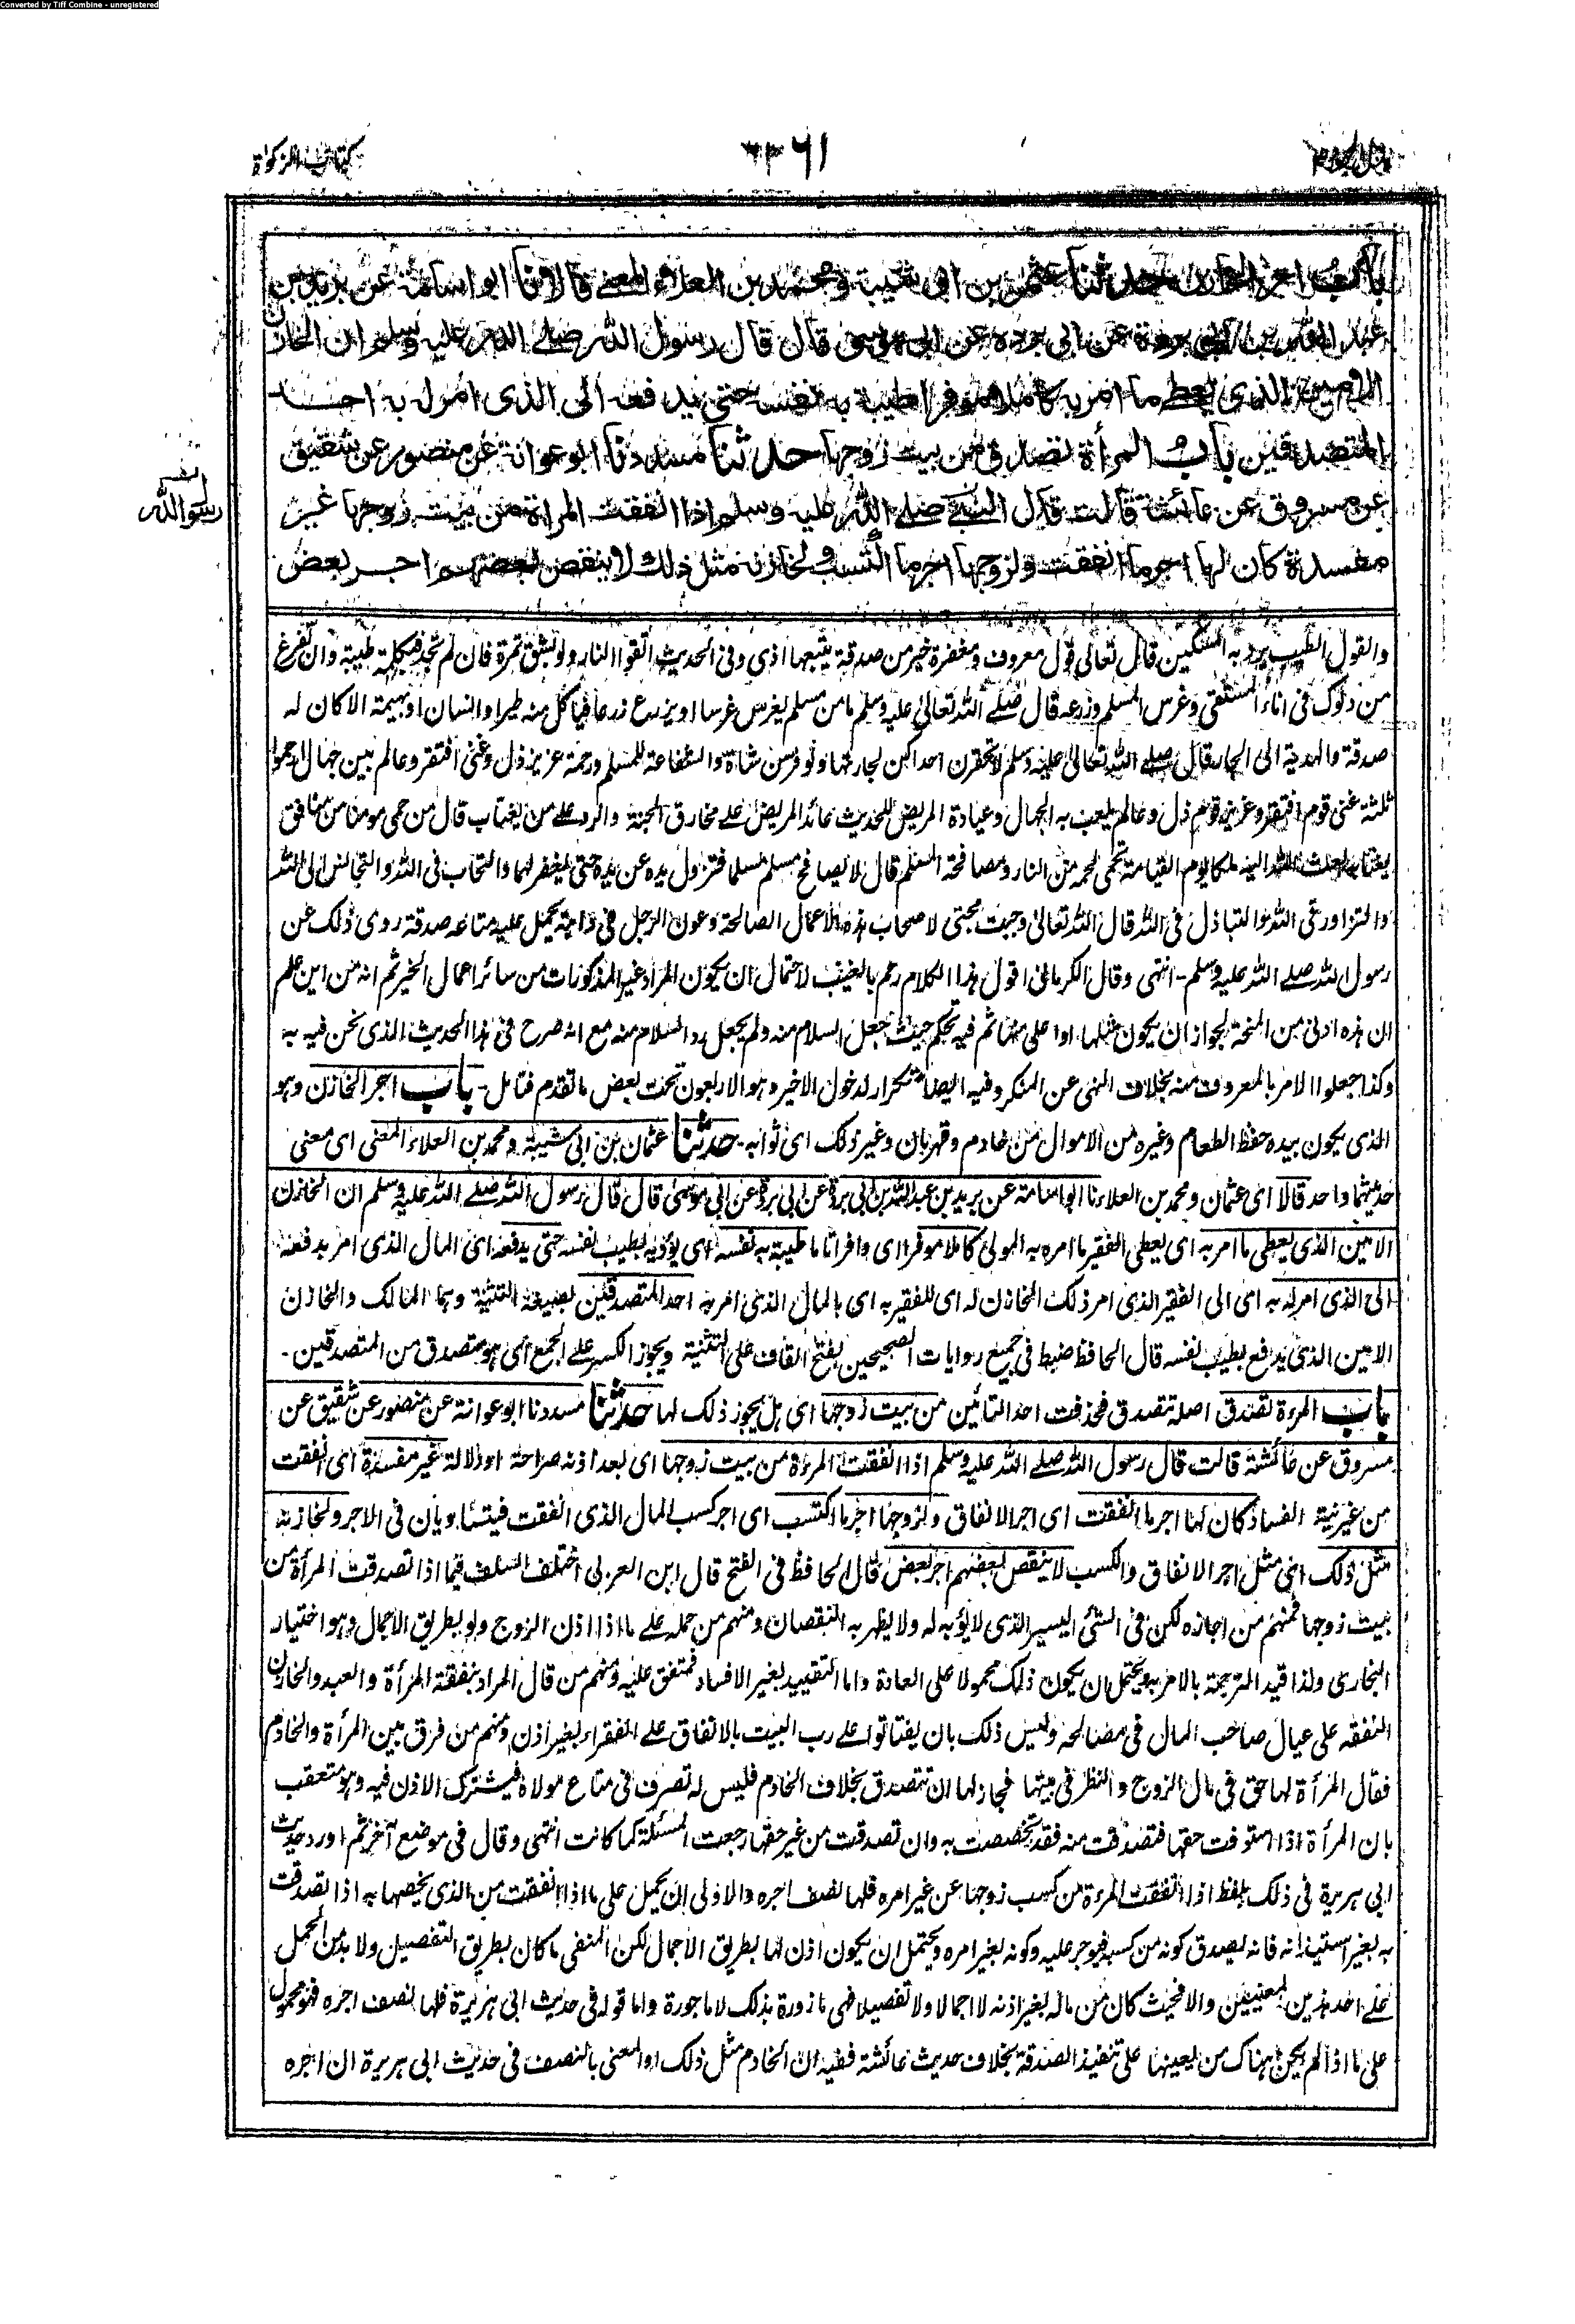 Converted by Tiff Combine - unregistered
كتاب الزكواة
باب اجر الخازن حدثنا عثمن بن ابى شيبة ومحمد بن العلاء المعنى قالا نا ابو اسامة عن بريد بن
عبد الله بن ابى بردة عن ابى بردة عن ابى موسى قال قال رسول الله صلى الله عليه وسلم ان الخازن
الامين الذى يعطى ما امر به كاملا موفرا طيبة به نفسه حتى يدفعه الى الذى امر له به احد
المتصدقين باب المرأة تصدق من بيت زوجها حدثنا مسدد نا ابو عوانة عن منصور عن شقيق
عن مسروق عن عائشة قالت قال النبى صلى الله عليه وسلم اذا انفقت المراة من بيت زوجها غير
رسول الله
مفسدة كان لها اجر ما انفقت ولزوجها اجر ما اكتسب ولخازنه مثل ذلك لا ينقص بعضهم اجر بعض
والقول الطيب يرد به المسكين قال تعالى قول معروف ومغفرة خير من صدقة يتبعها اذى وفى الحديث اتقوا النار ولو بشق تمرة فان لم تجد فبكلمة طيبة وان تفرغ
من دلوك فى اناء المستقى وغرس المسلم وزرعه قال صلى الله تعالى عليه وسلم ما من مسلم يغرس غرسا او يزرع زرعا فياكل منه طير او انسان او بهيمة الا كان له
صدقة والهدية الى الجار قال صلى الله تعالى عليه وسلم لا تحقرن احداكن لجارتها ولو فرسن شاة والشفاعة للمسلم ورحمة عزيز ذل وغنى افتقر وعالم بين جهال ارحموا
ثلثة غنى قوم افتقر وعزيز قوم ذل وعالم يلعب به الجهال وعيادة المريض للحديث عائد المريض على مخارق الجنة والرد على من يغتاب قال من حمى مومنا من منافق
يغتابه بعث الله اليه ملكا يوم القيامة يحمى لحمه من النار ومصافحة المسلم قال لا يصافح مسلم مسلما فتزول يده عن يده حتى يغفر لهما والتحاب فى الله والتجالس الى الله
والتزاور فى الله والتباذل فى الله قال الله تعالى وجبت محبتى لاصحاب هذه الاعمال الصالحة وعون الرجل فى دابة يحمل عليه متاعه صدقة روى ذلك عن
رسول الله صلى الله عليه وسلم - انتهى وقال الكرمانى اقول هذا الكلام رجم بالغيب لاحتمال ان يكون المراد غير المذكورات من سائر اعمال الخير ثم انه من اين علم
ان هذه ادنى من المنحة لجواز ان يكون مثلها او اعلى منها ثم فيه تحكم حيث جعل السلام منه ولم يجعل رد السلام منه مع انه صرح فى هذا الحديث الذى نحن فيه به
وكذا جعلوا الامر بالمعروف منه بخلاف النهى عن المنكر وفيه ايضا تكرار لدخول الاخير وهو الاربعون تحت بعض ما تقدم فتامل - باب اجر الخازن وهو
الذى يكون بيده حفظ الطعام وغيره من الاموال من خادم وقهرمان وغير ذلك اى ثوابه - حدثنا عثمان بن ابى شيبة ومحمد بن العلاء المعنى اى معنى
حديثهما واحد قالا اى عثمان ومحمد بن العلاء نا ابو اسامة عن بريد بن عبد الله بن ابى بردة عن ابى بردة عن ابى موسى قال قال رسول الله صلى الله عليه وسلم ان الخازن
الامين الذى يعطى ما امر به اى يعطى الفقير ما امره به المولى كاملا موفرا اى وافرا تاما طيبة به نفسه اى يؤديه بطيب نفسه حتى يدفعه اى المال الذى امر بدفعه
الى الذى امر له به اى الى الفقير الذى امر ذلك الخازن له اى للفقير به اى بالمال الذى امر به احد المتصدقين بصيغة التثنية وهما المالك والخازن
الامين الذى يدفع بطيب نفسه قال الحافظ ضبط فى جميع روايات الصحيحين بفتح القاف على التثنية ويجوز الكسر على الجمع اى هو متصدق من المتصدقين -
باب المرءة تصدق اصله تتصدق فحذفت احد التائين من بيت زوجها اى هل يجوز ذلك لها حدثنا مسدد نا ابو عوانة عن منصور عن شقيق عن
مسروق عن عائشة قالت قال رسول الله صلى الله عليه وسلم اذا انفقت المرءة من بيت زوجها اى بعد اذنه صراحة او دلالة غير مفسدة اى انفقت
من غير نية الفساد كان لها اجر ما انفقت اى اجر الانفاق ولزوجها اجر ما اكتسب اى اجر كسب المال الذى انفقت فيتساويان فى الاجر ولخازنه
مثل ذلك اى مثل اجر الانفاق والكسب لا ينقص بعضهم اجر بعض قال الحافظ فى الفتح قال ابن العربى اختلف السلف فيما اذا تصدقت المرأة من
بيت زوجها فمنهم من اجازه لكن فى الشئ اليسير الذى لا يؤبه له ولا يظهر به النقصان ومنهم من حمله على ما اذا اذن الزوج ولو بطريق الاجمال وهو اختيار
البخارى ولذا قيد الترجمة بالامر به ويحتمل ان يكون ذلك محمولا على العادة واما التقييد بغير الافساد فمتفق عليه ومنهم من قال المراد بنفقة المرأة والعبد والخازن
النفقة على عيال صاحب المال فى مصالحه وليس ذلك بان يفتاتوا على رب البيت بالانفاق على الفقراء بغير اذن ومنهم من فرق بين المرأة والخادم
فقال المرأة لها حق فى مال الزوج والنظر فى بيتها فجاز لها ان تتصدق بخلاف الخادم فليس له تصرف فى متاع مولاه فيشترك الاذن فيه وهو متعقب
بان المرأة اذا استوفت حقها فتصدقت منه فقد تخصصت به وان تصدقت من غير حقها رجعت المسئلة كما كانت انتهى وقال فى موضع آخر ثم اورد حديث
ابى هريرة فى ذلك بلفظ اذا انفقت المرءة من كسب زوجها عن غير امره فلها نصف اجره والاولى ان يحمل على ما اذا انفقت من الذى يخصها به اذا تصدقت
به بغير استيذانه فانه يصدق كونه من كسبه فيوجر عليه وكونه بغير امره ويحتمل ان يكون اذن لها بطريق الاجمال لكن المنفى ما كان بطريق التفصيل ولا بد من الحمل
على احد هذين المعنيين والا فحيث كان من ماله بغير اذنه لا اجمالا ولا تفصيلا فهى مازورة بذلك لا ماجورة واما قوله فى حديث ابى هريرة فلها نصف اجره فهو محمول
على ما اذا لم يكن هناك من يعينها على تنفيذ الصدقة بخلاف حديث عائشة ففيه ان الخادم مثل ذلك او المعنى بالنصف فى حديث ابى هريرة ان اجره